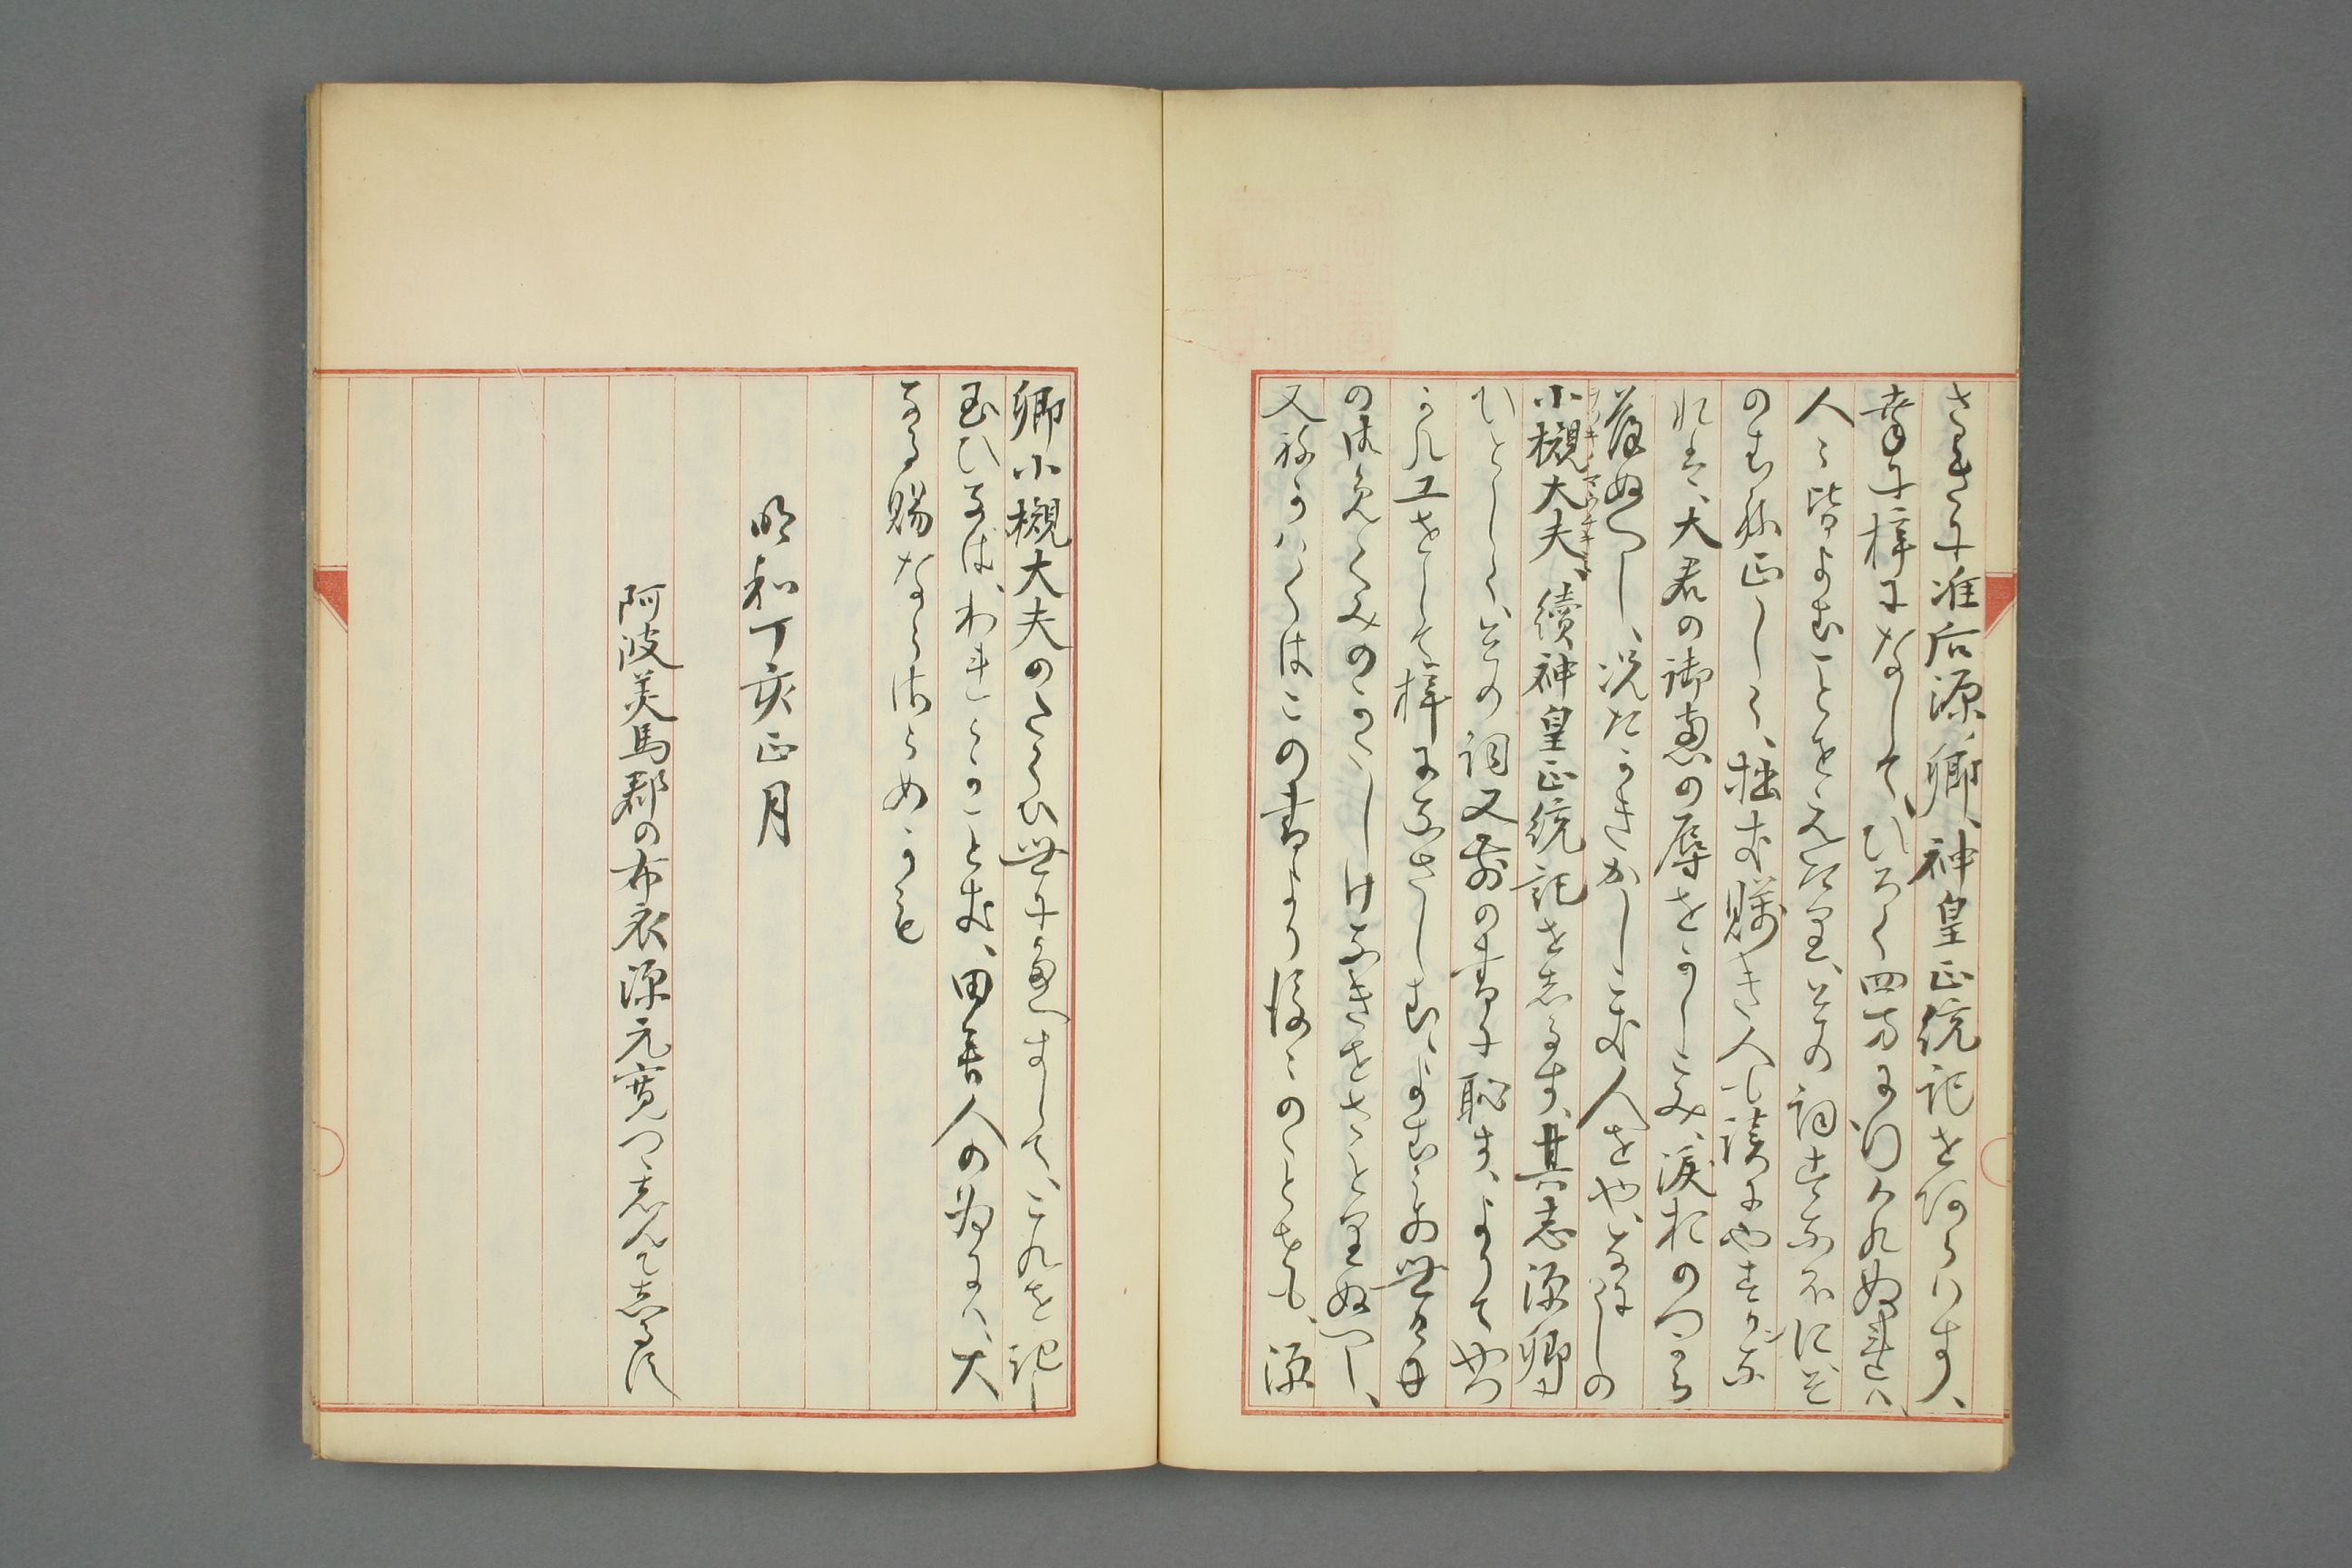 さきに准后源卿、神皇正統記をあらハす、
幸に梓になして、ひろく四方に行ハれぬれハ、
人々皆よむことをえたり、その詞すなほにそ
のむね正しく、拙き賤き人も読にやすからん
れは、大君の御恵の辱をかしこみ、涙おのつから
落ぬへし、況たかきかしこき人をや、なほしの
小槻大夫、續神皇正統記をしるす、其志源卿に
ひとしく、その詞又前の書に恥す、よりてやつ
かれ工をして梓に
のはめくみのかたしけなきをさとりぬへし、
又ねかハくはこの書より後々のことをも、源
卿小槻大夫のたくひ世にましまして、これを記し
玉ひなは、われ々のことき、田舎人の為にハ、大
なる賜ならさらめかも
明和丁亥正月
阿波美馬郡の布衣源元寛つゝしんてしるす